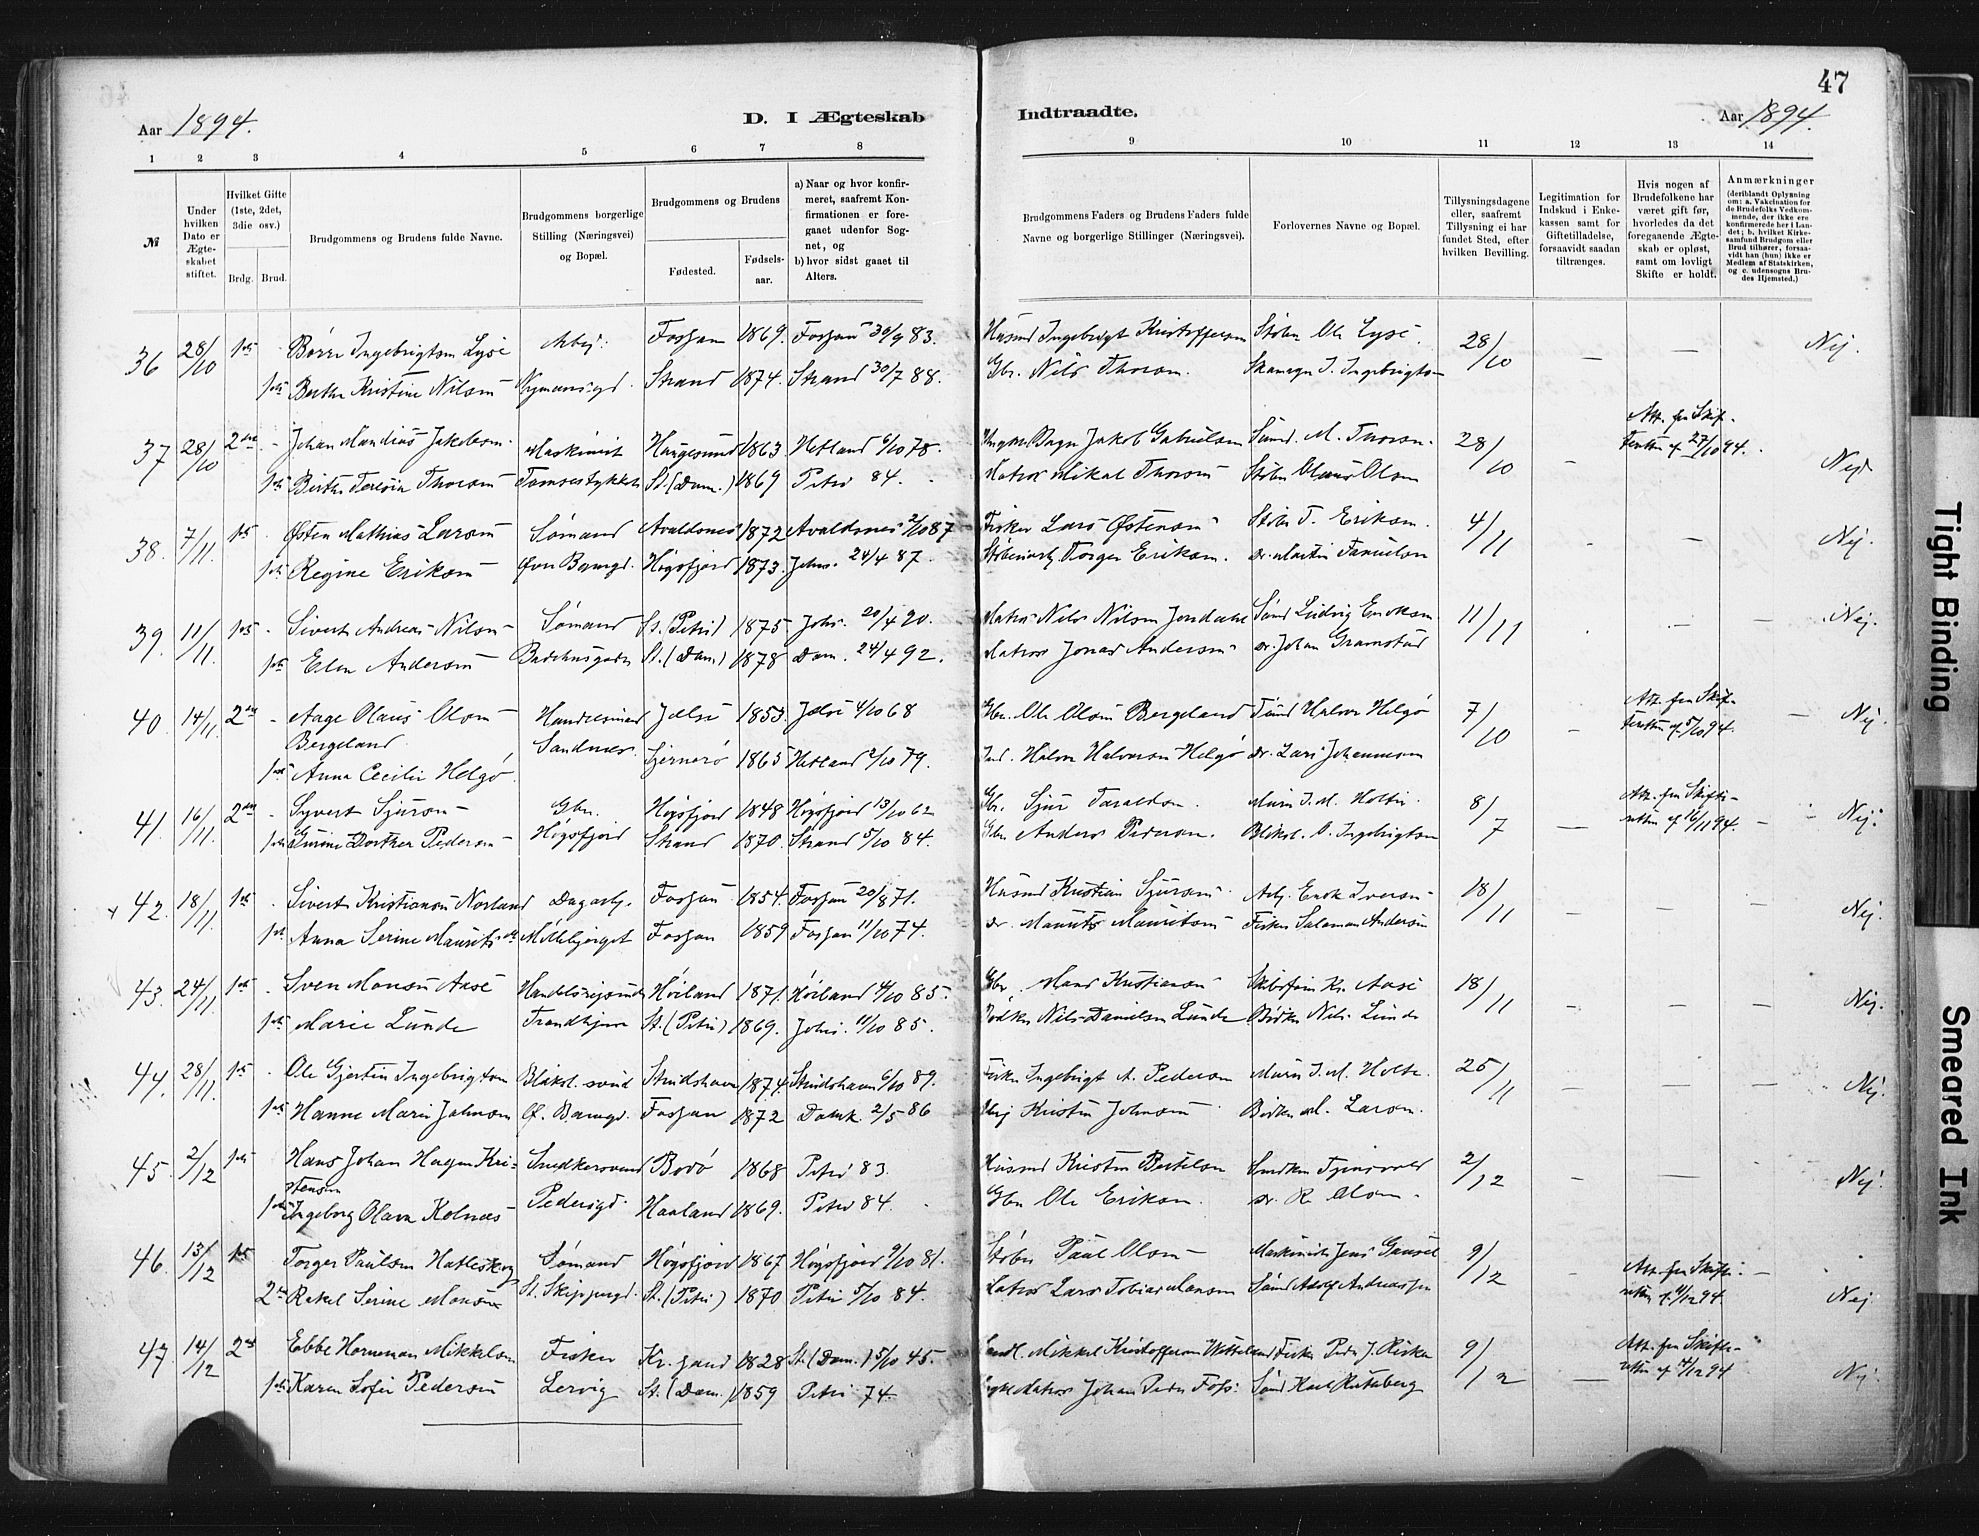 47
Aar 1894.
D. I Ægteskab
Indtraadte.
Aar 1894.
1 2 3 4 5 6 7 8 9 10 11 12 13 14
№
Under hvilken Dato er Ægteskabet stiftet.
Hvilket Gifte (1ste, 2det, 3die osv.)
Brdg. Brud.
Brudgommens og Brudens fulde Navne.
Brudgommens borgerlige Stilling (Næringsvei) og Bopæl.
Brudgommens og Brudens
Fødested.
Fødselsaar.
a) Naar og hvor konfirmeret, saafremt Konfirmationen er foregaaet udenfor Sognet, og
b) hvor sidst gaaet til Alters.
Brudgommens Faders og Brudens Faders fulde Navne og borgerlige Stillinger (Næringsvei).
Forlovernes Navne og Bopæl.
Tillysningsdagene eller, saafremt Tillysning ei har fundet Sted, efter hvilken Bevilling.
Legitimation for Indskud i Enkekassen samt for Giftetilladelse, forsaavidt saadan tiltrænges.
Hvis nogen af Brudefolkene har været gift før, hvorledes da det foregaaende Ægteskab er opløst, samt om lovligt Skifte er holdt.
Anmærkninger
(deriblandt Oplysning om: a. Vakcination for de Brudefolks Vedkommende, der ikke ere konfirmerede her i Landet; b. hvilket Kirkesamfund Brudgom eller Brud tilhører, forsaavidt han (hun) ikke er Medlem af Statskirken, og c. udensogns Brudes Hjemsted.)
36 28/10 1ste Børre Ingebrigtsen Lyse Arbej. Fossan 1869. Fossan 30/9 83. Husmd Ingebrigt Kristoffersen Støber Ole Lyse. 28/10 — — Nej.
1ste Berthe Kristine Nilsen Nymansgd. Strand 1874. Strand 30/7 88. Gbr. Nils Thorsen. J. Ingebrigtsen
37 28/10 2den Johan Mandius Jakobsen Maskinist Haugesund 1863 Hetland 6/10 78. Jakob Gabrielsen Sømd. M. Thorsen. 28/10 - Att. fra Skifteretten af 27/10 94. Nej.
1ste Berthe Teresia Thorsen Tomsestykket St. (Dom.) 1869 Petri 84. Matros Mikal Thorsen Støber Olaus Olsen
38. 7/11. 1ste Østen Mathias Larsen Sømand Avaldsnes 1872 Avaldsnes 2/10 87 Fisker Lars Østensen Støber T. Eriksen. 4/11 - - Nej.
1ste Regine Eriksen Øvre Banegd. Høgsfjord 1873. Johs. 24/4 87. Torger Eriksen. dr. Martin Danielsen
39. 11/11. 1ste Sivert Andreas Nilsen Sømand St. (Petri) 1875 Johs. 20/4 90. Matros Nils Nilsen Sømd Ludvig Eriksen 11/11 Nej.
1ste Elen Andersen Badehusgaden St. (Dom) 1878 Dom. 24/4 92. Matros Jonas Andersen dr. Johan Gramstad
40 14/11. 2den Aage Olaus Olsen Bergeland Handelsmand Sandnes Jælse 1853. Jælse 4/10 68 Gbr. Ole Olsen Bergeland Halvor Helgø 7/10 - Att. fra Skifteretten af 5/10 94. — Nej.
1ste Anna Cecilie Helgø. Sjernerø 1865 Hetland 2/10 79. Halvor Halvorsen Helgø dr. Lars Johannesen
41. 16/11. 2den Syvert Sjursen Gbr. Høgsfjord 1848 Høgsfjord 13/10 62 Gbr. Sjur Taraldsen. Murer J. M. Holte. 8/7 — Att. fra Skifteretten af 16/11 94. — Nej.
1ste Gurine Dorthea Pedersen Høgsfjord Strand 1870. Strand 5/10 84. Gbr Anders Pedersen. Bliksl. O. Ingebrigtsen
42. 18/11. 1ste Sivert Kristiansen Norland Dagarbj. Fossan 1854. Fossan 20/8 71. Husmd Kristian Sjursen Arbj. Erik Iversen 18/11 - - — Nej.
1ste Anna Serine Mauritsdtr Møllebjerget Fossan 1859 Fossan 11/10 74. dr. Maurits Mauritsen Fisker Salamon Andersen
43. 24/11. 1ste Sven Monsen Aase Høiland 1871. Høiland 4/10 85. Gbr. Mons Kristiansen Kr. Aase 18/11 - — — Nej.
1ste Marie Lunde Trondhjem St. (Petri) 1869. Johs. 11/10 85. Bødker Nils Danielsen Lunde Bødker Nils Lunde
44. 28/11. 1ste Ole Gjertin Ingebrigtsen Bliksl. svend Skudshavn 1874. Skudshavn 6/10 89. Fisker Ingebrigt A. Pedersen Murer J. M. Holte. 25/11 - — — Nej.
1ste Hanne Marie Johnsen Ø. Banegd. Fossan 1872 Domk. 2/5 86 Arbj Kristen Johnsen Bødker M. Larsen.
45. 2/12 1ste Hans Johan Hagen Kristensen Snedkersvend Bodø 1868 Petri 83. Husmd Kristen Bertelsen Snedker 2/12 - — Nej.
1ste Ingeborg Olava Kolnæs Pedersgd. Haaland 1869. Petri 84. Gbr Ole Eriksen. dr. R. Olsen.
46. 13/12 1ste Torger Paulsen Hatleskog Sømand Høgsfjord 1867 Høgsfjord 9/10 81. Støber Paul Olsen Maskinist Jens Gausel 9/12 - Att. fra Skifteretten af 11/12 94. — Nej.
2den Rakel Serine Monsen St. Skippergd. St. (Petri) 1870 Petri 5/10 84. Matros Lars Tobias Monsen Sømd Adolf Andreassen
47. 14/12 2det Ebbe Horneman Mikkelsen Fisker Kr. sand 1828 St. (Dom. 15/10 45. Mikkel Kristoffersen Fisker Peder J. Riska 9/12 — Att. fra Skifteretten af 14/12 94 Nej.
1ste Karen Sofie Pedersen Lervig St. (Dom) 1859 Petri 74. Matros Johan Peder Foss. Sømd Karl
Tight Binding
Smeared Ink